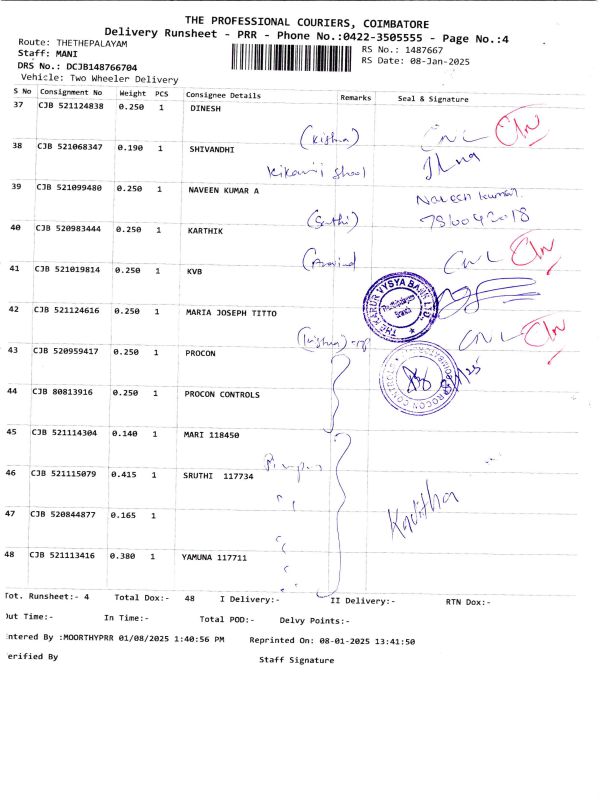 THE PROFESSIONAL COURIERS, COIMBATORE
Delivery Runsheet - PRR - Phone No.:0422-3505555 - Page No.:4
Route: THETHEPALAYAM
RS No.: 1487667
Staff: MANI
RS Date: 08-Jan-2025
DRS No.: DCJB148766704
Vehicle: Two Wheeler Delivery
S No Consignment No Weight PCS Consignee Details Remarks Seal & Signature
37 CJB 521124838 0.250 1 DINESH
(Kishna) CNL
38 CJB 521068347 0.190 1 SHIVANDHI
39 CJB 521099480 0.250 1 NAVEEN KUMAR A
Naveen kumar
(Sathi)
40 CJB 520983444 0.250 1 KARTHIK
CNL
41 CJB 521019814 0.250 1 KVB
THE KARUR VYSYA BANK LTD.
Branch
42 CJB 521124616 0.250 1 MARIA JOSEPH TITTO
CNL
43 CJB 520959417 0.250 1 PROCON
44 CJB 80813916 0.250 1 PROCON CONTROLS
PROCON CONTROLS
45 CJB 521114304 0.140 1 MARI 118450
46 CJB 521115079 0.415 1 SRUTHI 117734
Kavitha
47 CJB 520844877 0.165 1
48 CJB 521113416 0.380 1 YAMUNA 117711
Tot. Runsheet:- 4 Total Dox:- 48 I Delivery:- II Delivery:- RTN Dox:-
Out Time:- In Time:- Total POD:- Delvy Points:-
ntered By :MOORTHYPRR 01/08/2025 1:40:56 PM Reprinted On: 08-01-2025 13:41:50
erified By Staff Signature